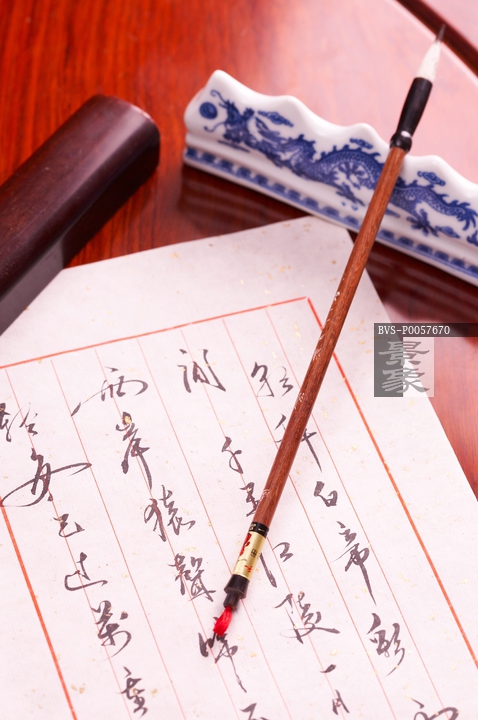 朝辞白帝彩云
間千里江陵一日
兩岸猿聲啼不
輕舟已過萬重
BVS-P0057670
景象